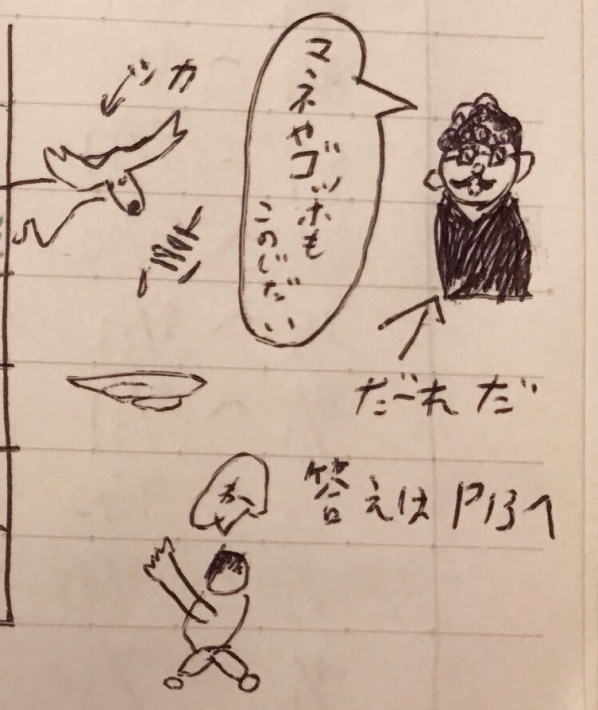 シカ
マネやゴッホも
このじだい
だ〜れだ
答えはP13へ